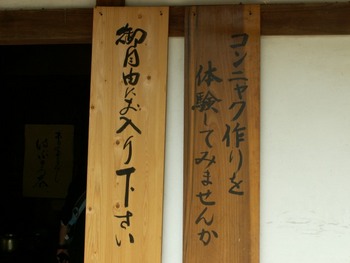 コンニャク作りを
体験してみませんか
御自由にお入り下さい